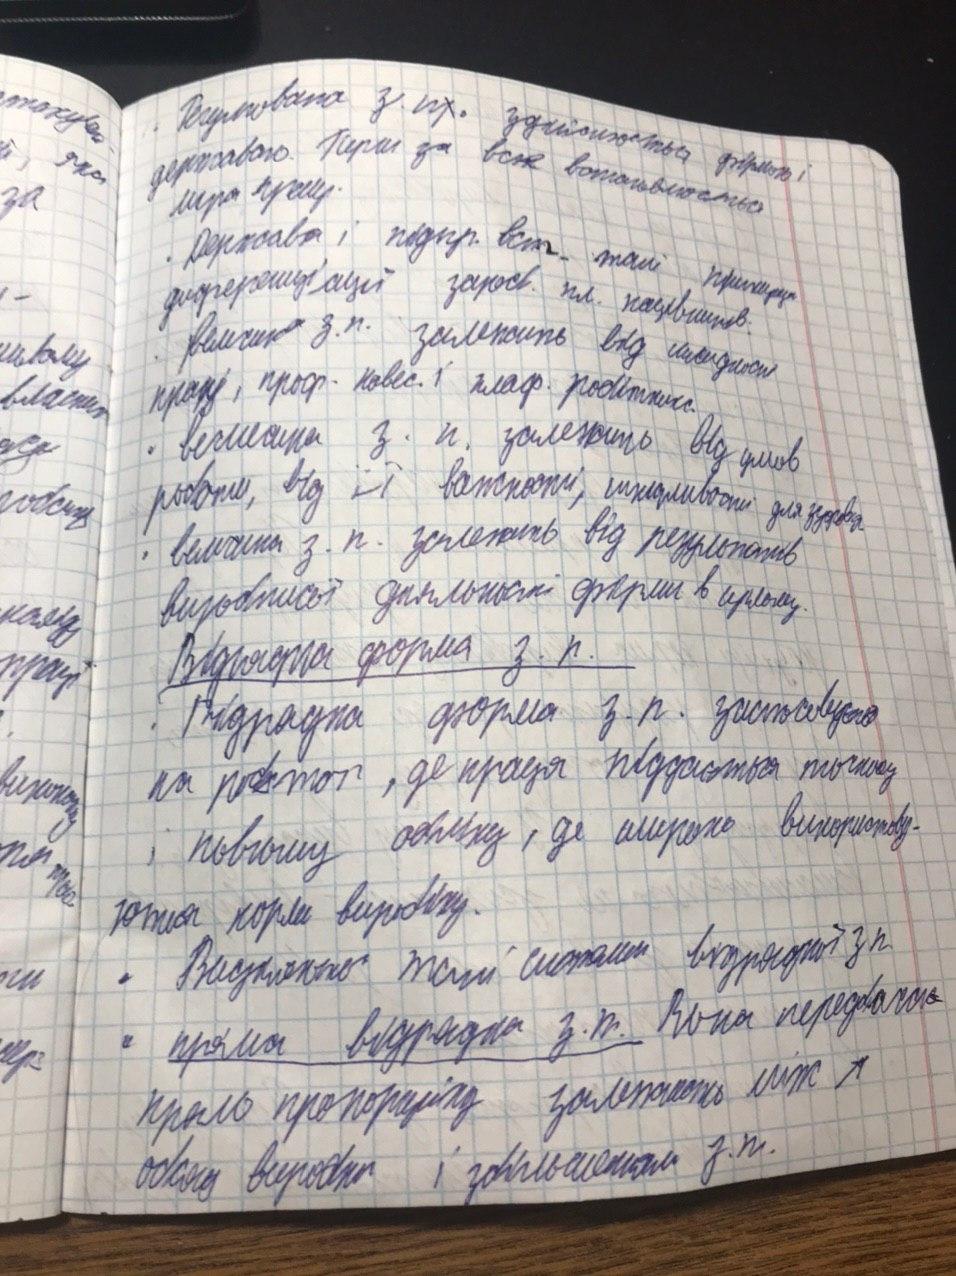 · Регулювання з.пл. здійснюється фірмою і
державою. Перш за все встановлюється
міра праці.
· Держава і підпр. вст. такі принципи
диференціації зароб. пл. працівників.
· величина з.п. залежить від складності
праці, проф. навес. і кваф. робітника.
· величина з. п. залежить від умов
роботи, від її важкості, шкідливості для здоровя
· величина з. п. залежить від результатів
виробничої діяльності фірми в цілому.
Відрядна форма з. п.
· Відрядна форма з.п. застосовується
на роботах, де праця піддається точному
і повному обліку, де широко використову-
ються норми виробітку.
· Виділяють такі системи відрядної з п
· пряма відрядна з.п. Вона передбачає
пряму пропорційну залежність між ↗
обсягу виробітку і збільшенням з.п.
стажув
, яка
за
-
власник
праці